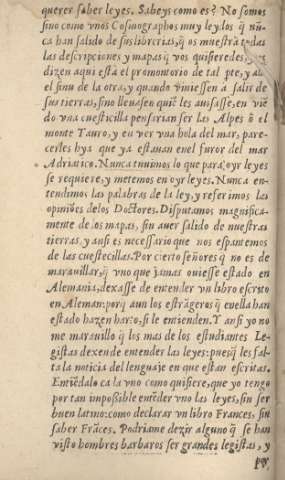 querer saber leyes. Sabeys como es? No somos
sino como vnos Cosmographos muy leydos q̃ nũ-
ca han salido de sus librerias, q̃ os muestrã todas
las descripciones y mapas q̃ vos quisieredes, y os
dizen aqui està el promontorio de tal pte, y alli
el sinu de la otra, y quando viniessen a salir de
sus tierras, sino lleuassen quiẽ les auisasse, en viẽ-
do vna cuesticilla pensarian ser las Alpes ô el
monte Tauro, y en ver vna hola del mar, pare-
cerles hya que ya estauan en el furor del mar
Adriatico. Nunca tuuimos lo que para oyr leyes
se requiere, y metemos en oyr leyes. Nunca en-
tendimos las palabras de la ley, y referimos las
opiniões delos Doctores. Disputamos magnifica-
mente de los mapas, sin auer salido de nuestras
tierras, y ansi es necessario que nos espantemos
de las cuestecillas. Por cierto señores q̃ no es de
marauillar, q̃ vno que jamas ouiesse estado en
Alemania, dexasse de entender vn libro escrito
en Aleman: porq̃ aun los estrãgeros q̃ en ella han
estado hazen harto, si le entienden. Y ansi yo no
me marauillo q̃ los mas de los estudiantes Le-
gistas dexen de entender las leyes: pues q̃ les fal-
ta la noticia del lenguaje en que estan escritas.
Entiẽdalo ca la vno como quisiere, que yo tengo
por tan impossible entẽder vno las leyes, sin ser
buen latino: como declarar vn libro Frances, sin
saber Frãces. Podriame dezir alguno q̃ se han
visto hombres barbaros ser grandes legistas, y